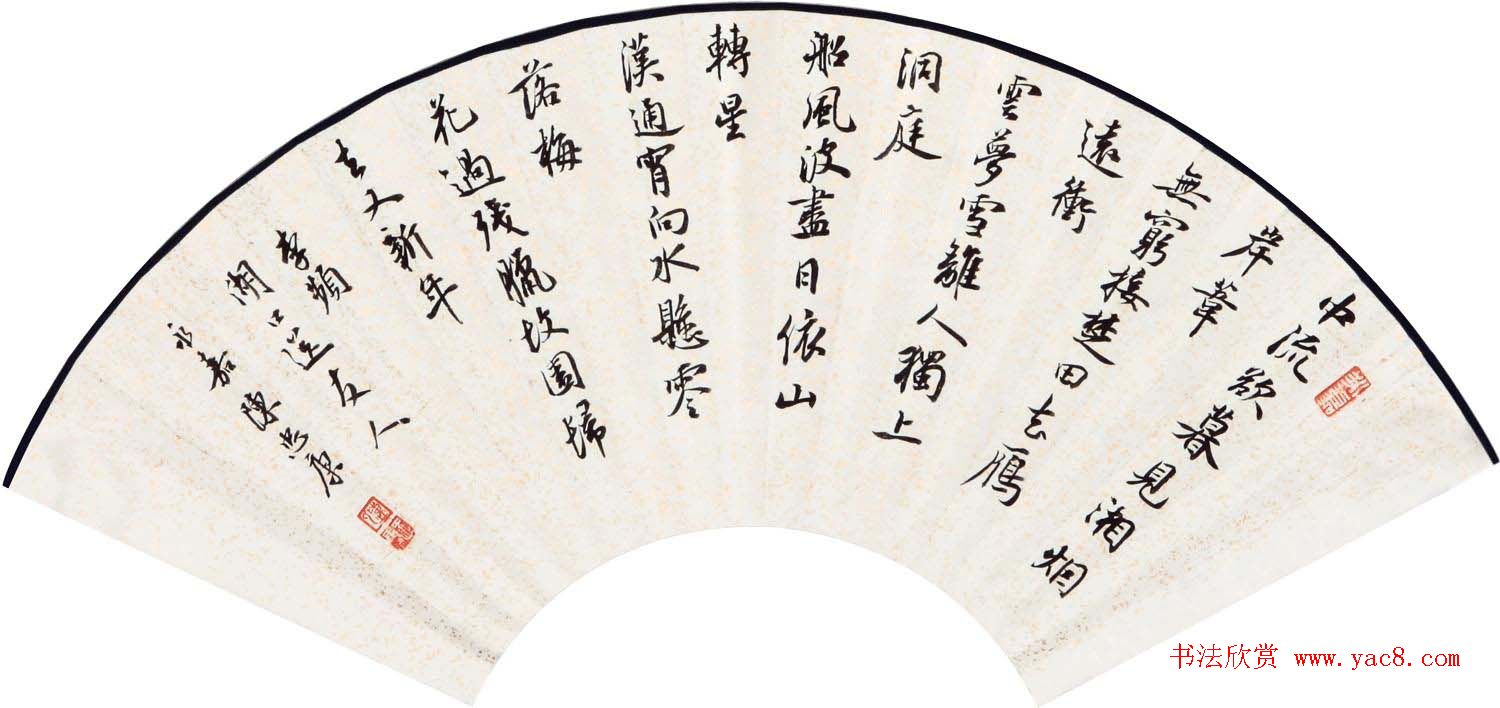 中流欲暮見湘烟
岸葦
無窮接楚田去鴈
遠衝
雲夢雪離人獨上
洞庭
船風波盡日依山
轉星
漢通宵向水懸零
落梅
花過殘臘故園歸
去又新年
李頻
湖口送友人
永嘉陳忠康
书法欣赏 www.yac8.com